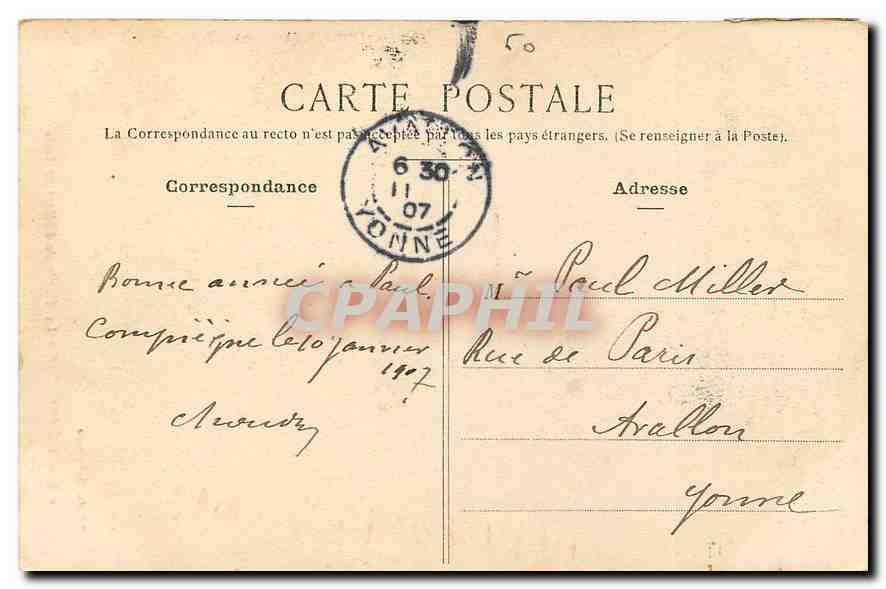 50
CARTE POSTALE
La Correspondance au recto n'est pas acceptée par tous les pays étrangers. (Se renseigner à la Poste).
AVALLON
6 30
11
07
YONNE
Correspondance
Adresse
Bonne année a Paul.
Compiègne le 10 Janvier
1907
Mr Paul Miller
Rue de Paris
Avallon
Yonne
CPAPHIL